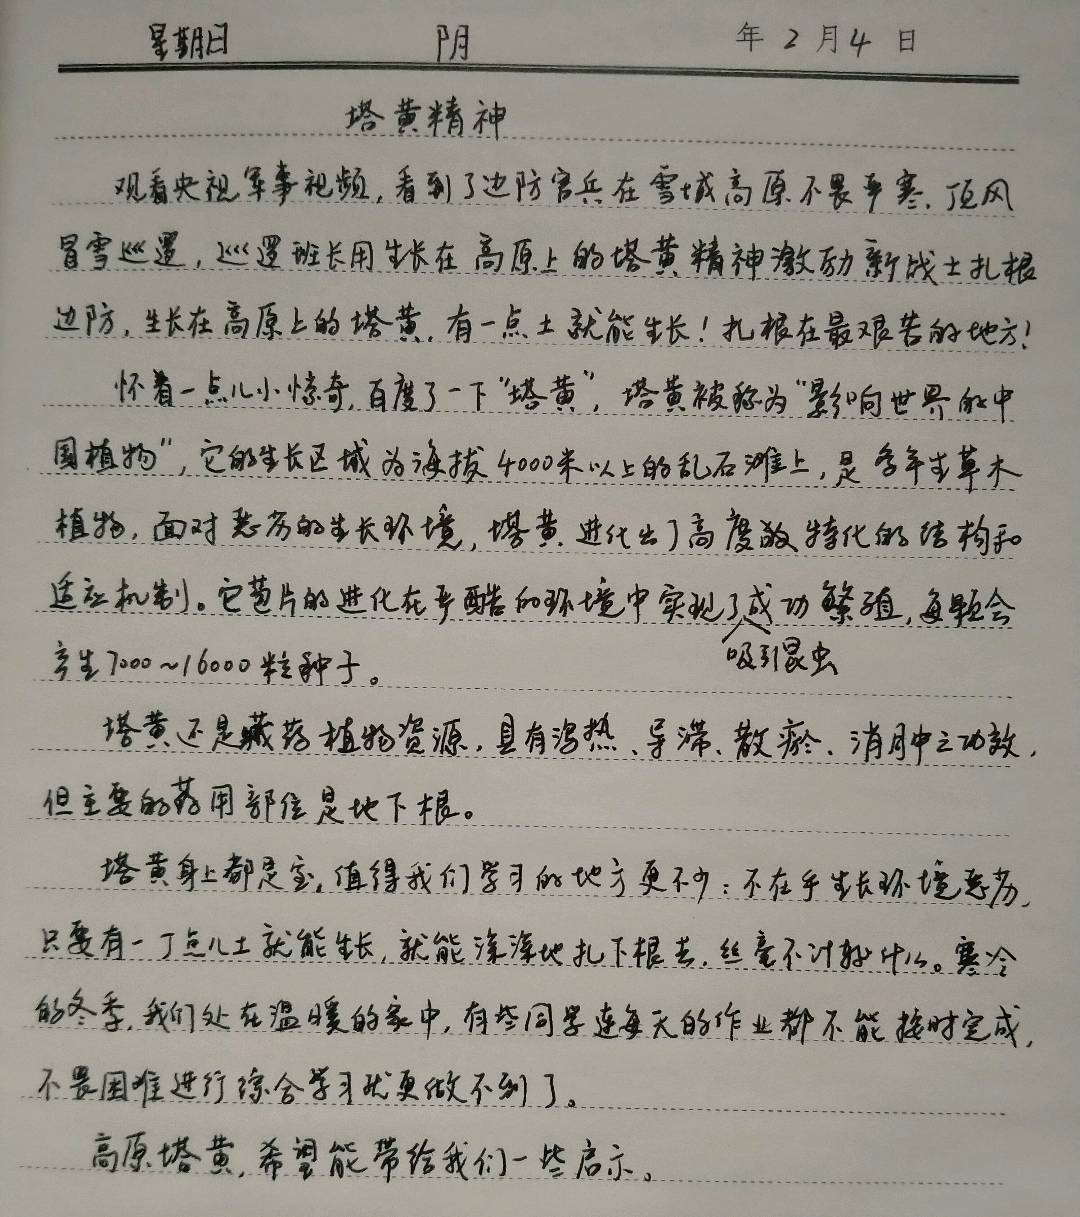 星期日 阴 年 2 月 4 日
塔黄精神
观看央视军事视频,看到了边防官兵在雪域高原不畏严寒、顶风
冒雪巡逻,巡逻班长用生长在高原上的塔黄精神激励新战士扎根
边防,生长在高原上的塔黄,有一点土就能生长!扎根在最艰苦的地方!
怀着一点儿小惊奇,百度了一下“塔黄”,塔黄被称为“影响向世界的中
国植物”,它的生长区域为海拔4000米以上的乱石滩上,是多年生草本
植物,面对恶劣的生长环境,塔黄进化出了高度敌特化的结构和
适应机制。它苞片的进化在严酷的环境中实现了成功繁殖,每颗会
吸引昆虫
产生7000~16000粒种子。
塔黄还是藏药植物资源,具有泻热、导滞、散瘀、消肿之功效,
但主要的药用部位是地下根。
塔黄身上都是宝,值得我们学习的地方更不少:不在乎生长环境恶劣,
只要有一丁点儿土就能生长,就能深深地扎下根去,丝毫不计较什么。寒冷
的冬季,我们处在温暖的家中,有些同学连每天的作业都不能按时完成,
不畏困难进行综合学习就更做不到了。
高原塔黄,希望能带给我们一些启示。